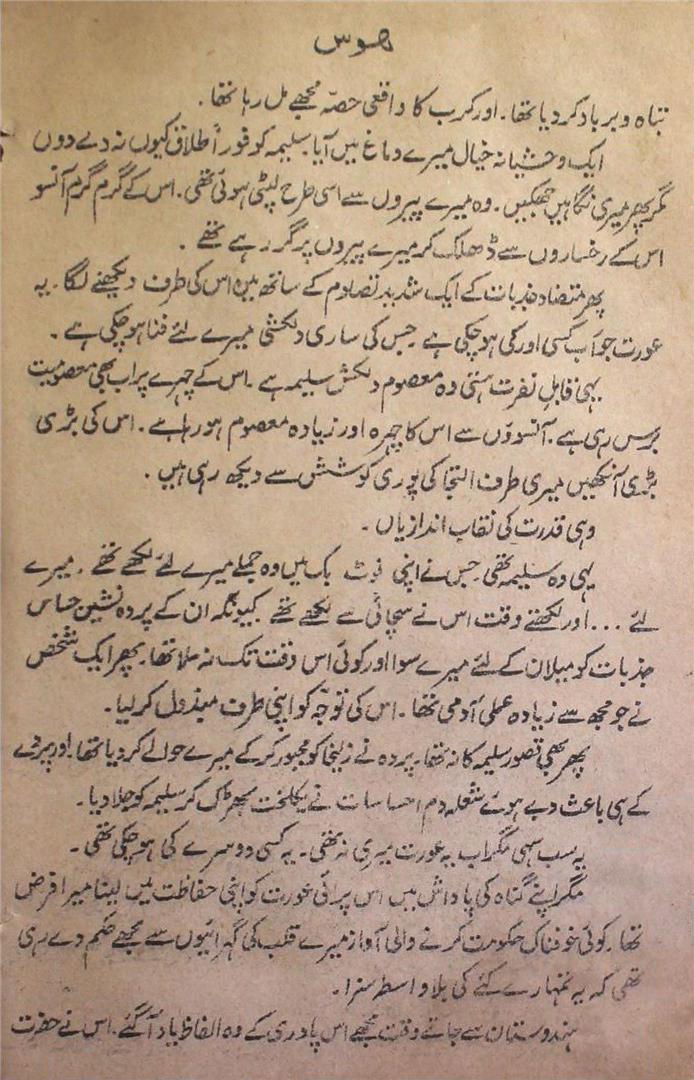 ہوس
تباہ و برباد کر دیا تھا۔ اور کرب کا واقعی حصّہ مجھے مل رہا تھا۔
ایک وحشیانہ خیال میرے دماغ میں آیا۔ سلیمہ کو فوراً طلاق کیوں نہ دے دوں
مگر پھر میری نگاہیں جھکیں۔ وہ میرے پیروں سے اسی طرح لپٹی ہوئی تھی۔ اس کے گرم گرم آنسو
اس کے رخساروں سے ڈھلک کر میرے پیروں پر گر رہے تھے۔
پھر متضاد جذبات کے ایک شدید تصادم کے ساتھ میں اس کی طرف دیکھنے لگا۔ یہ
عورت جو اب کسی اور کی ہو چکی ہے جس کی ساری دلکشی میرے لئے فنا ہو چکی ہے۔
یہی قابلِ نفرت ہستی وہ معصوم دلکش سلیمہ ہے۔ اس کے چہرے پر اب بھی معصومیت
برس رہی ہے۔ آنسوؤں سے اس کا چہرہ اور زیادہ معصوم ہو رہا ہے۔ اس کی بڑی
بڑی آنکھیں میری طرف التجا کی پوری کوشش سے دیکھ رہی ہیں۔
وہی قدرت کی نقاب اندازیاں۔
یہی وہ سلیمہ تھی جس نے اپنی نوٹ بک میں وہ جملے میرے لئے لکھے تھے۔ میرے
لئے ... اور لکھتے وقت اس نے سچائی سے لکھے تھے کیونکہ ان کے پردہ نشین حساس
جذبات کو میلان کے لئے میرے سوا اور کوئی اس وقت تک نہ ملا تھا۔ پھر ایک شخص
نے جو مجھ سے زیادہ عملی آدمی تھا۔ اس کی توجّہ کو اپنی طرف مبذول کر لیا۔
پھر بھی قصور سلیمہ کا نہ تھا۔ پردہ نے زلیخا کو مجبور کر کے میرے حوالے کر دیا تھا۔ اور پردے
کے ہی باعث دبے ہوئے شعلہ دم احساسات نے یکلخت بھڑک کر سلیمہ کو جلا دیا۔
یہ سب سہی مگر اب یہ عورت میری نہ تھی۔ یہ کسی دوسرے کی ہو چکی تھی۔
مگر اپنے گناہ کی پاداش میں اس پرائی عورت کو اپنی حفاظت میں لینا میرا فرض
تھا۔ کوئی خوفناک حکومت کرنے والی آواز میرے قلب کی گہرائیوں سے مجھے حکم دے رہی
تھی کہ یہ تمہارے کئے کی بلاواسطہ سزا۔
ہندوستان سے جاتے وقت مجھے اس پادری کے وہ الفاظ یاد آ گئے۔ اس نے حضرت